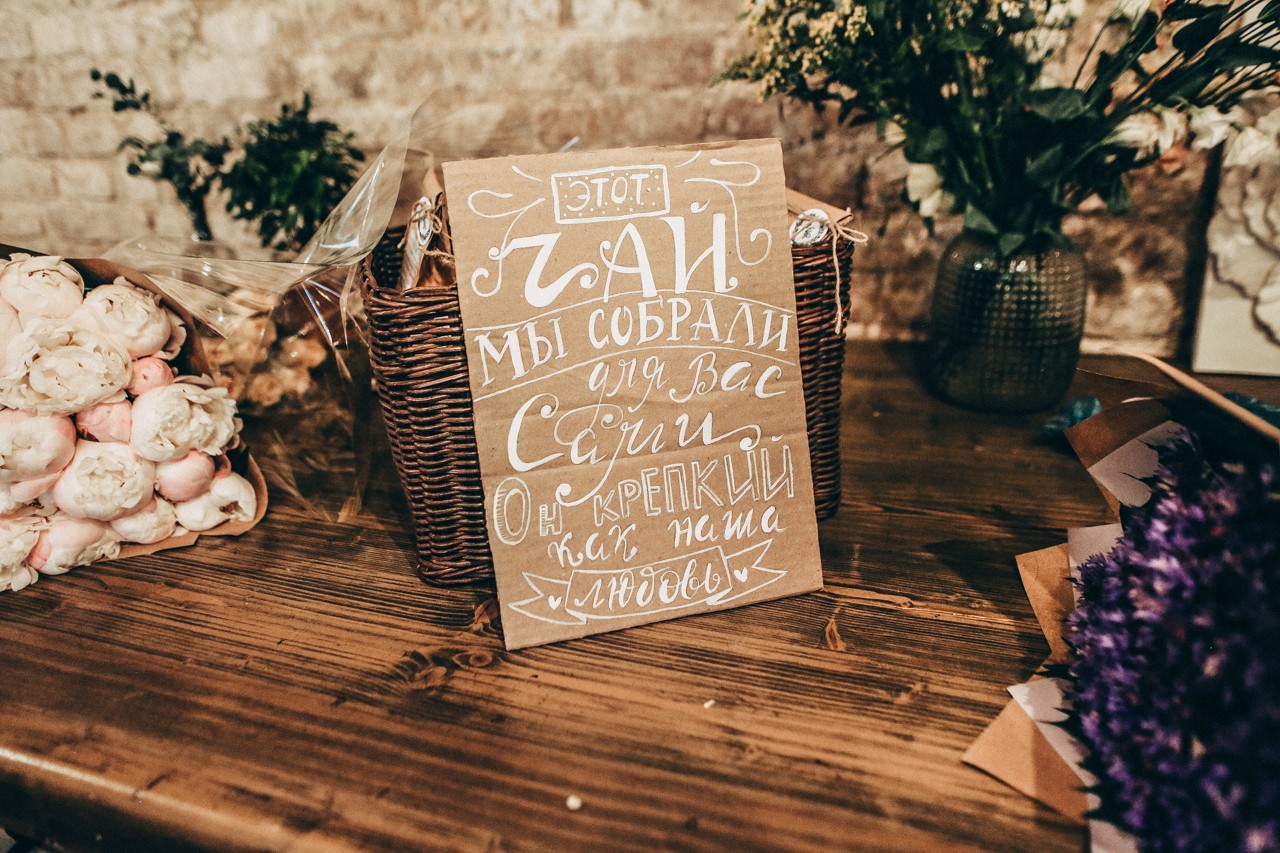 ЭТОТ
ЧАЙ
МЫ СОБРАЛИ
для Вас
Сами
Он КРЕПКИЙ
как наша
любовь